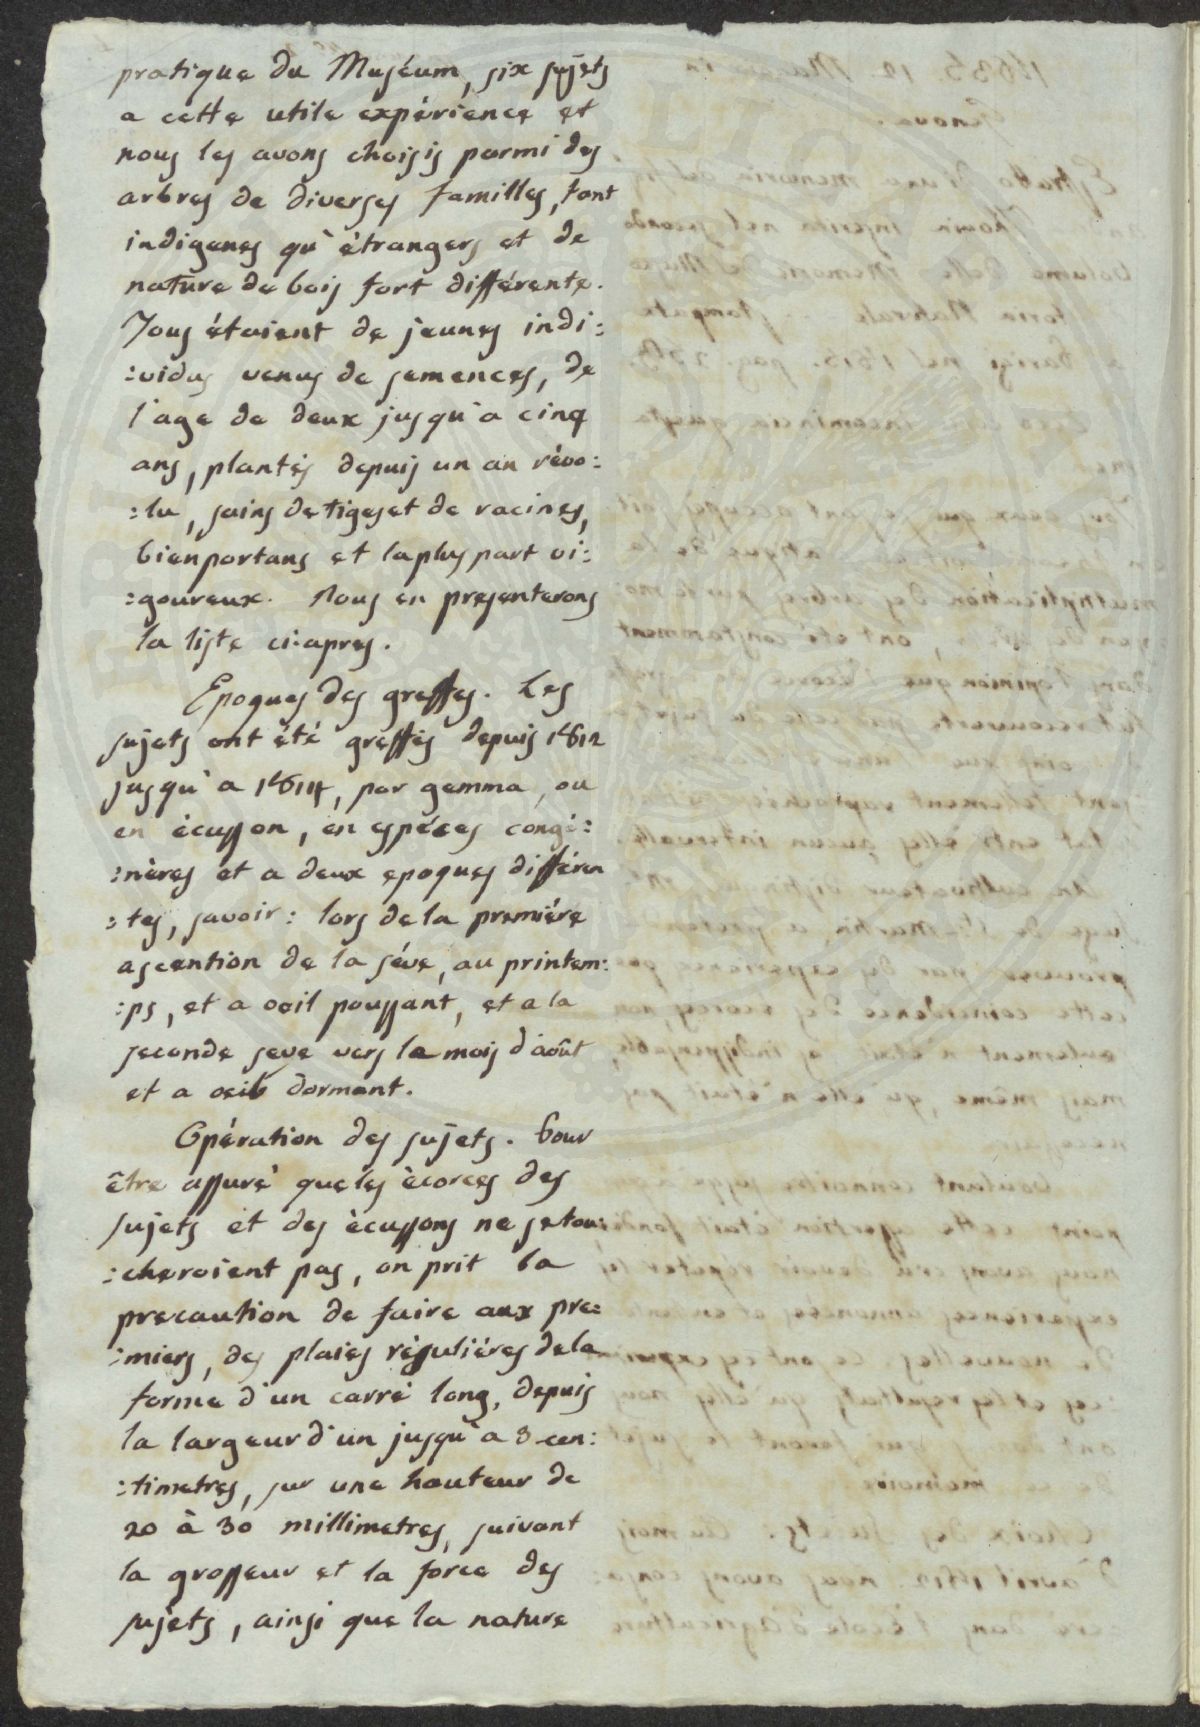 pratique du Muséum, six sujets
a cette utile expérience et
nous les avons choisis parmi des
arbres de diverses familles, tant
indigenes qu'étrangers et de
nature de bois fort différente.
Tous étoient de jeunes indi:
:vidus venus de semences, de
l'age de deux jusqu'a cinq
ans, plantés depuis un an révo:
:lu, sains de tiges et de racines,
bien portans et la plus part vi:
:goureux. Nous en presenterons
la liste ci:apres.
Epoques des greffes. Les
sujets ont été greffés depuis 1812
jusqu'a 1814, par gemma, ou
en écusson, en espéces congé:
:nères et a deux epoques différen
:tes, savoir: lors de la premiére
ascention de la séve, au printem:
:ps, et a oeil poussant, et a la
seconde seve vers le mois d'août
et a oeil dormant.
Opération des sujets. Pour
être assuré que les écorces des
sujets et des écussons ne se tou:
:cheroient pas, on prit la
precaution de faire aux pre:
:miers, des plaies réguliéres de la
forme d'un carré long, depuis
la largeur d'un jusqu'a 3 cen:
:timetres, sur une hauteur de
20 à 30 millimetres, suivant
la grosseur et la force des
sujets, ainsi que la nature